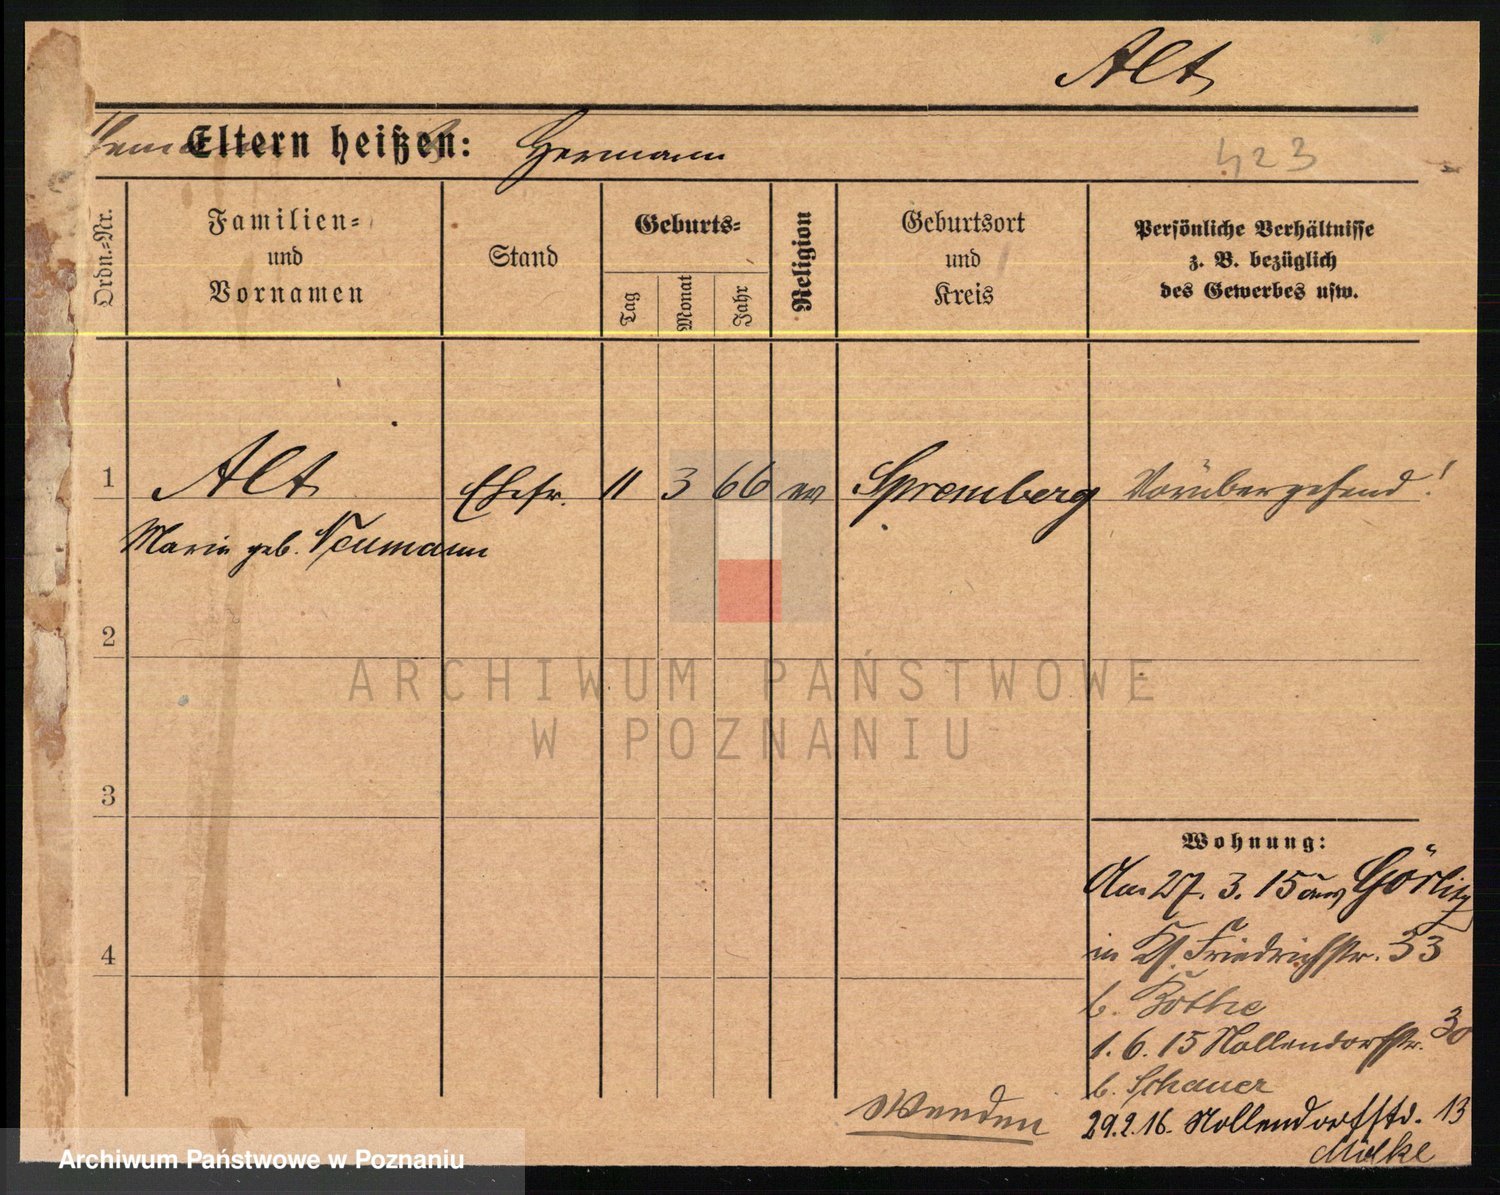 Alt
Eltern heißen: Hermann
423
Ordn.-Nr.
Familien-
und
Vornamen
Stand
Geburts-
Tag
Monat
Jahr
Religion
Geburtsort
und
Kreis
Persönliche Verhältnisse
z. B. bezüglich
des Gewerbes usw.
1 Alt Ehefr. 11 3 66 ev Spremberg Vorübergehend!
Marie geb. Neumann
2
ARCHIWUM PAŃSTWOWE
W POZNANIU
3
Wohnung:
Am 27. 3. 15 aus Görlitz
4
in Friedrichstr. 33
b. Kothe
1. 6. 15 Nollendorfstr. 30
b. Schauer
Wenden
29.2.16. Nollendorfstr. 13
Archiwum Państwowe w Poznaniu